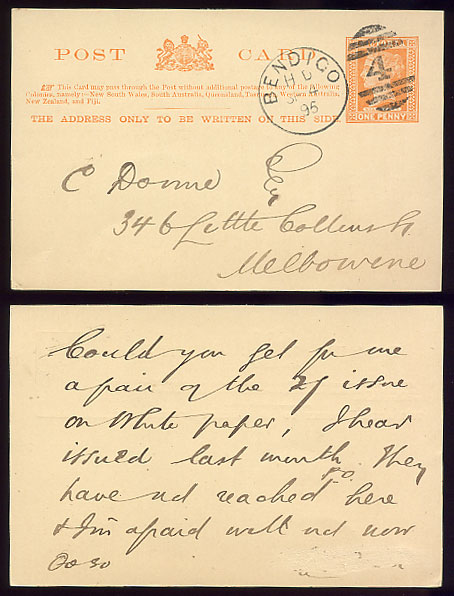 POST CARD
This Card may pass through the Post without additional postage to any of the following
Colonies, namely:—New South Wales, South Australia, Queensland, Western Australia,
New Zealand, and Fiji.
THE ADDRESS ONLY TO BE WRITTEN ON THIS SIDE.
BENDIGO
95
4
ONE PENNY
C Donne Esq
346 Little Collins St
Melbourne
Could you get for me
a pair of the 2/ issue
on White paper, I hear
issued last month. They
have not reached here
& I'm afraid will not now
do so